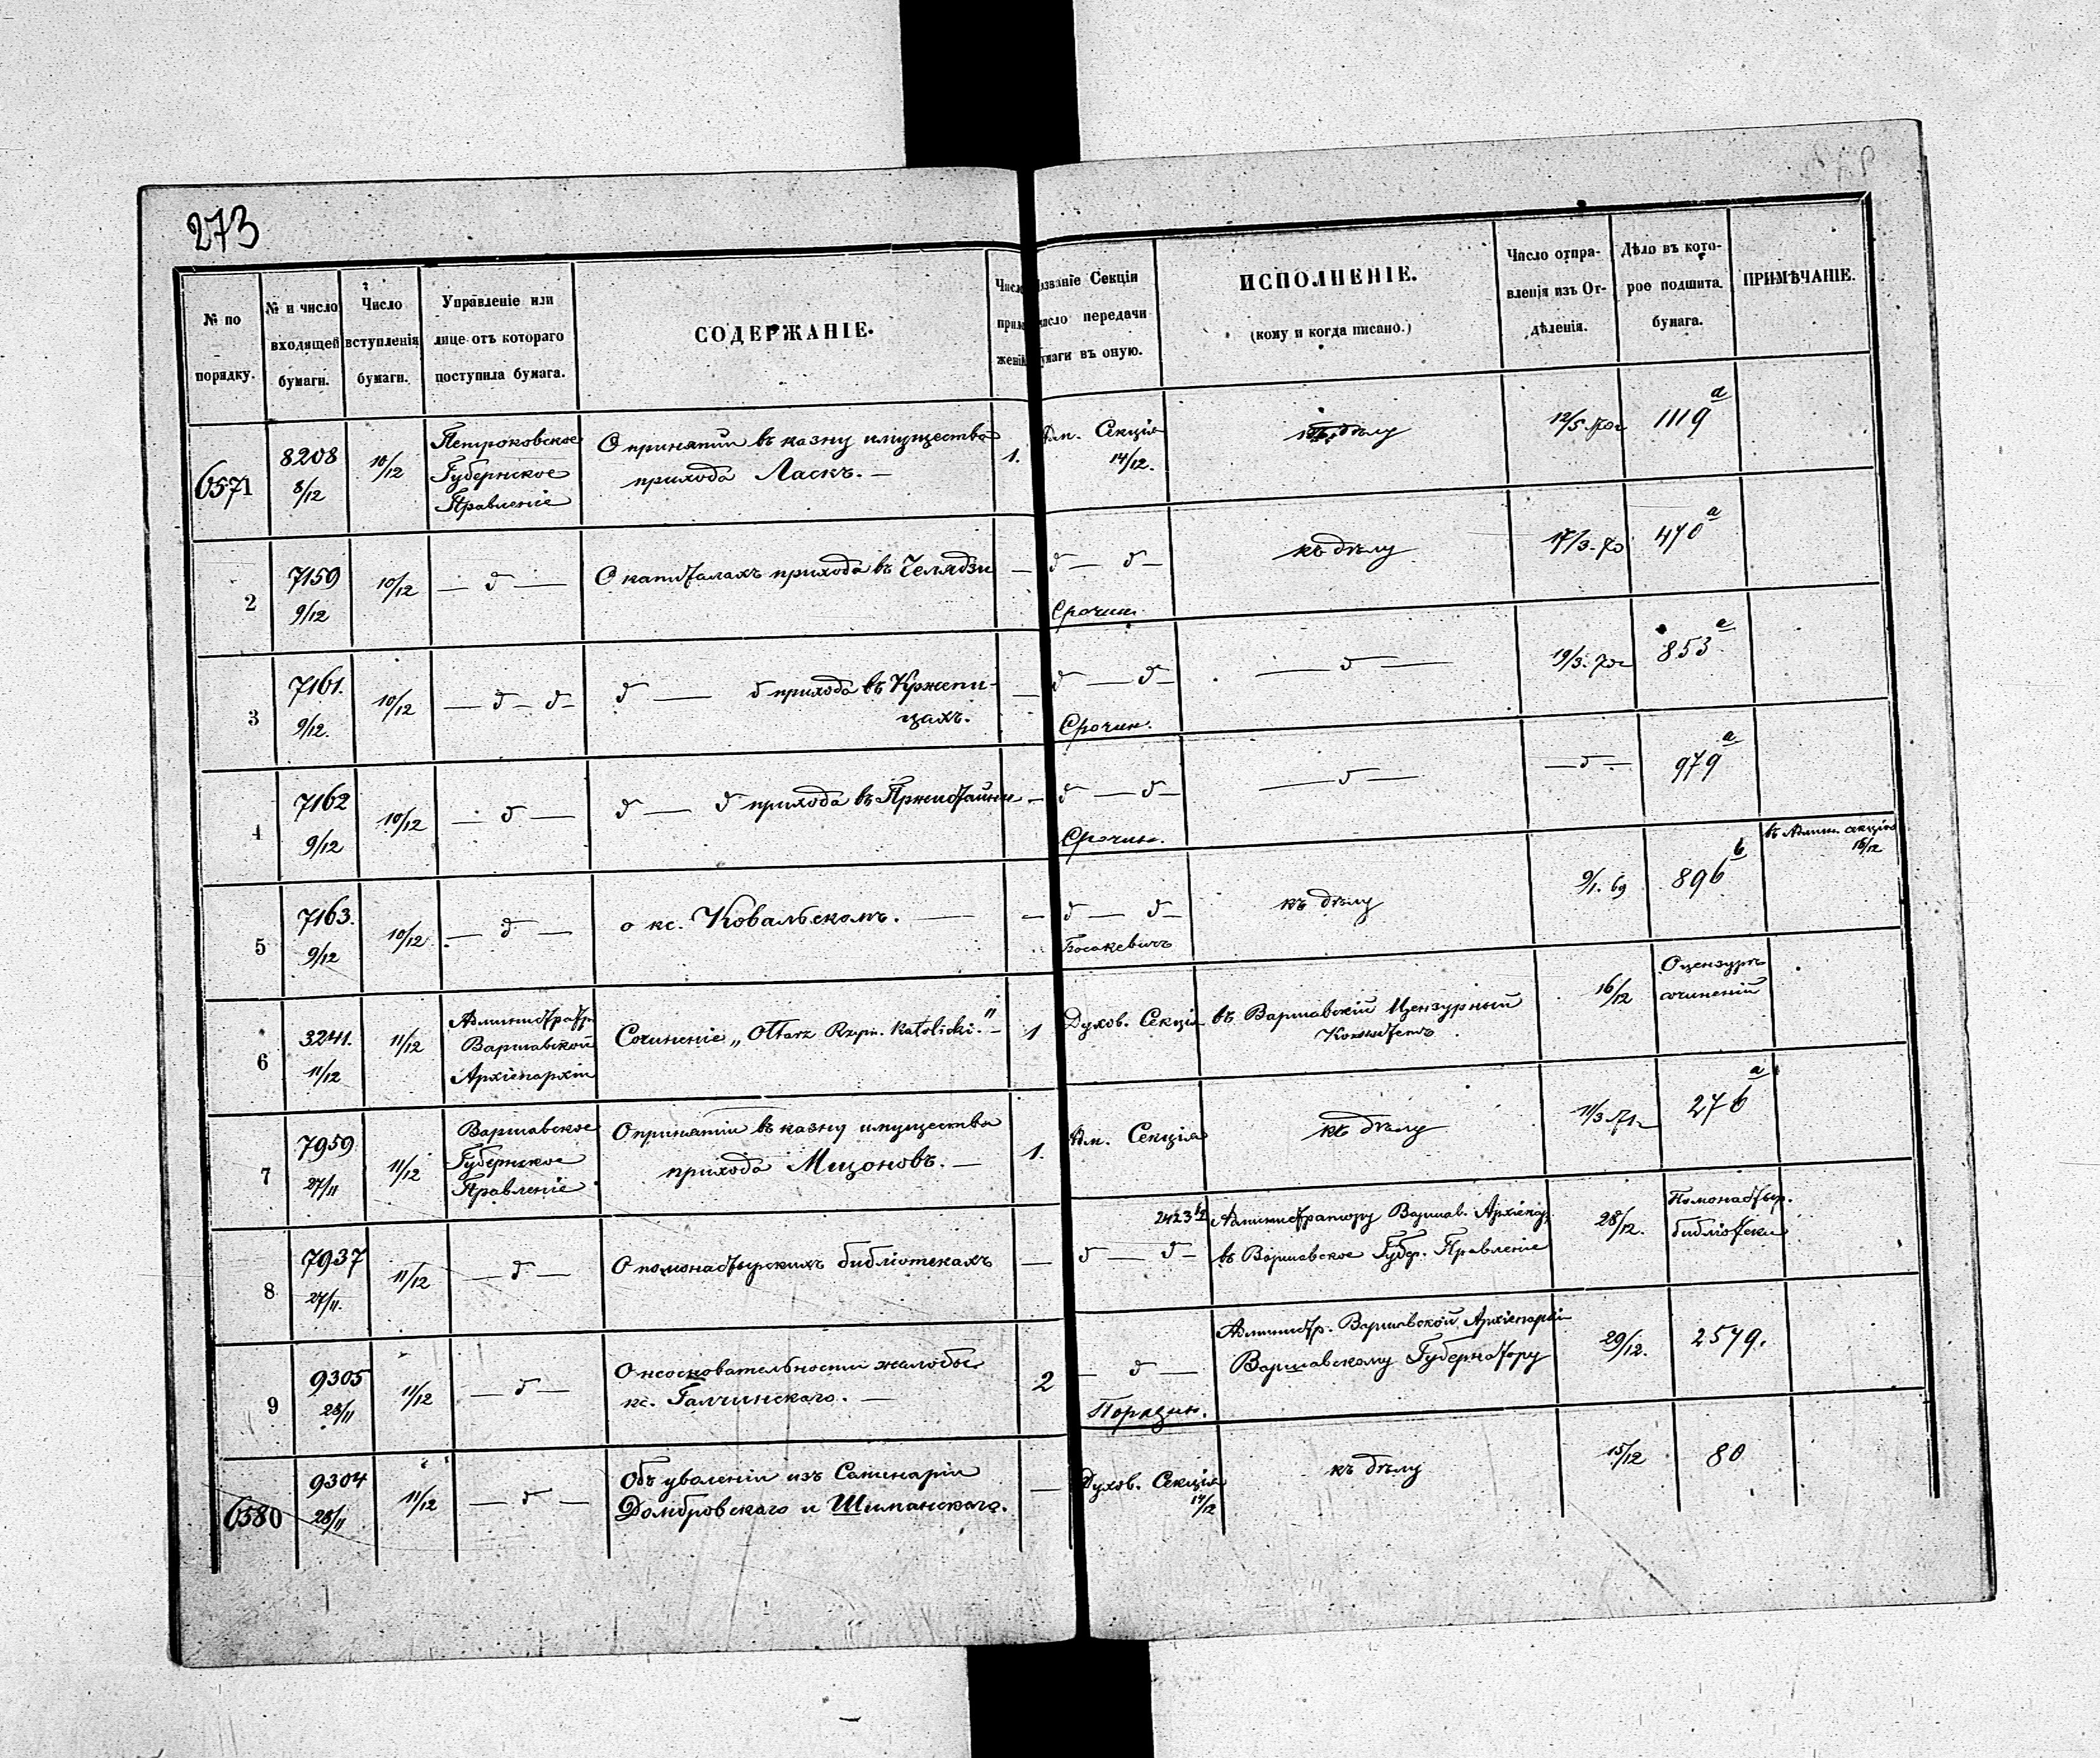 273
№ по порядку.
№ и число входящей бумаги.
Число вступленія бумаги.
Управленіе или лице отъ котораго поступила бумага.
СОДЕРЖАНІЕ.
Число приложеній
Названіе Секціи число передачи бумаги въ оную.
ИСПОЛНЕНІЕ.
(кому и когда писано.)
Число отправленія изъ Отдѣленія.
Дѣло въ которое подшита бумага.
ПРИМѢЧАНІЕ.
6571
8208
8/12
10/12
Петроковское
Губернское
Правленіе
О принятіи въ казну имущества
прихода Ласкъ. —
1.
Адм. Секція
14/12.
къ дѣлу
12/5.
1119 a
2
7159
9/12
10/12
— д —
О капиталахъ прихода въ Челядзи
—
д — д —
Срочин.
къ дѣлу
17/3. 70
470 a
3
7161.
9/12.
10/12
— д — д —
д — д прихода въ Кржепи-
цахъ.
—
д — д —
Срочин.
— д —
19/3.
853 a
4
7162
9/12
10/12
— д —
д — д прихода въ Пржистайни
—
д — д —
Срочин.
— д —
— д —
979 a
5
7163.
9/12
10/12
— д —
о кс. Ковальскомъ. —
—
д — д —
Босакевичъ
къ дѣлу
9/1. 69
896 b
въ Админ. секцію
16/12
6
3241.
11/12
11/12
Администраторъ
Варшавской
Архіепархіи
Сочиненіе „Ołtarz Rzym. Katolicki." —
1
Духов. Секція
въ Варшавскій Цензурный
Комитетъ
16/12
О цензурѣ
сочиненій
7
7959
27/11
11/12
Варшавское
Губернское
Правленіе
О принятіи въ казну имущества
прихода Мщоновъ. —
1.
Адм. Секція
къ дѣлу
11/3.
276 a
8
7937
27/11.
11/12
— д —
О помонастырскихъ библіотекахъ
—
2423
д — д —
Администратору Варшав. Архіепар.
въ Варшавское Губер. Правленіе
28/12.
Помонастыр.
библіотеки
9
9305
28/11
11/12
— д —
О неосновательности жалобы
кс. Галчинскаго. —
2
— д —
Порядин.
Администр. Варшавской Архіепархіи
Варшавскому Губернатору
29/12.
2579.
6580
9304
28/11
11/12
— д —
Объ уволеніи изъ Семинаріи
Домбровскаго и Шиманскаго.
—
Духов. Секція
14/12
къ дѣлу
15/12
80